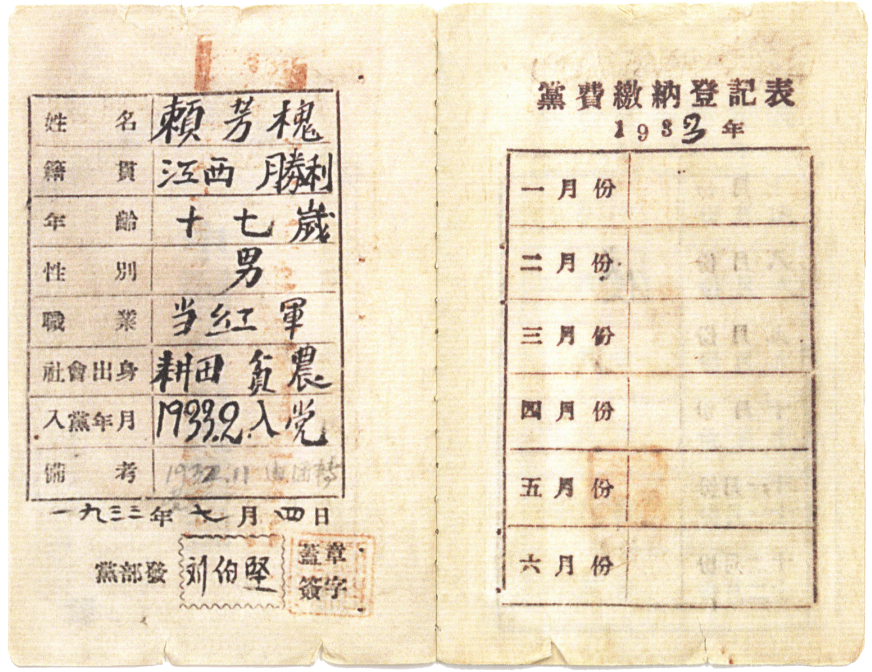 姓名 賴芳槐
籍貫 江西 勝利
年齡 十七歲
性別 男
職業 当紅軍
社會出身 耕田 貧農
入黨年月 1933.2入党
備考 1932.11
一九三三年七月四日
黨部發 刘伯堅 蓋章
簽字
黨費繳納登記表
1933年
一月份
二月份
三月份
四月份
五月份
六月份